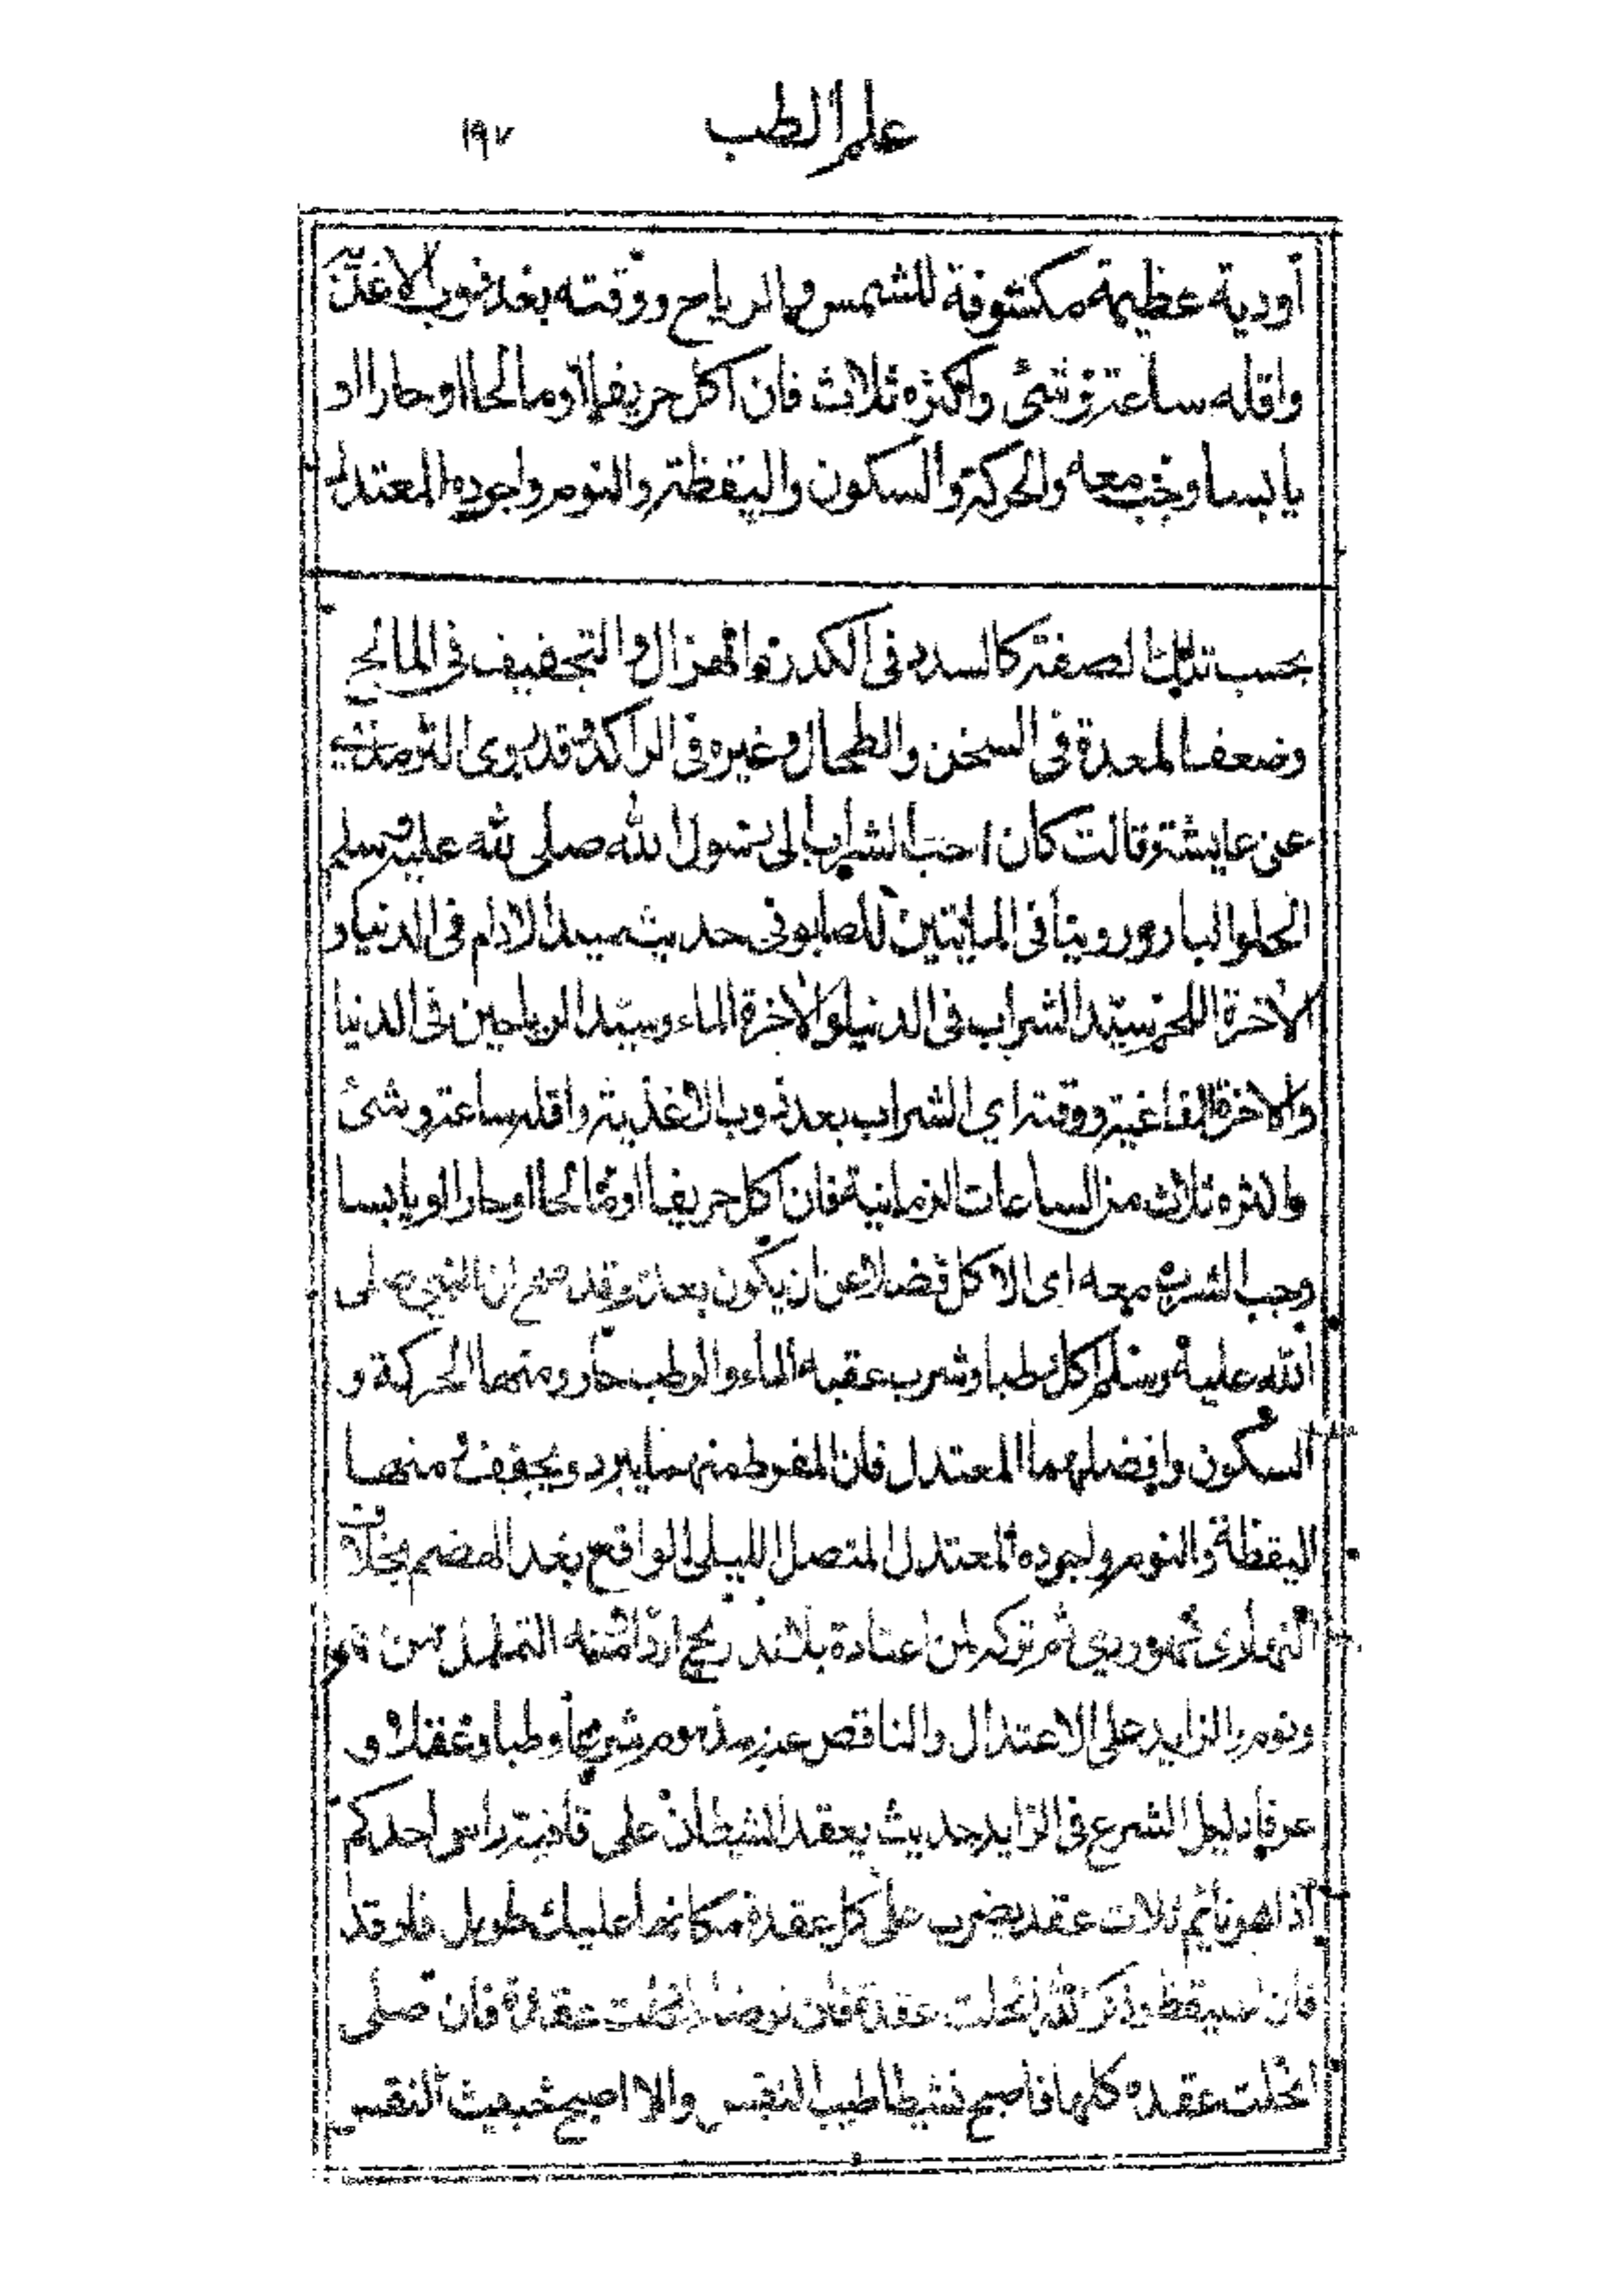 علم الطب ١٩٧
أودية عظيمة مكشوفة للشمس والرياح ووقته بعد ذوب الاغذية
واقله ساعة وشئ واكثره ثلاث فان اكل حريفا او مالحا او حارا او
يابسا وجب معه والحركة والسكون واليقظة والنوم واجوده المعتدل
بحسب تلك الصفة كالسدد فى الكدر والهزال والتجفيف فى المالح
وضعف المعدة فى السخن والطحال وغيره فى الراكد وقد روى الترمذى
عن عايشة قالت كان احب الشراب الى رسول الله صلى الله عليه وسلم
الحلو البارد وروينا فى الماتين للصابونى حديث سيد الادام فى الدنيا و
الاخرة اللحم وسيد الشراب فى الدنيا والاخرة الماء وسيد الرياحين فى الدنيا
والاخرة الفاغية ووقته اي الشراب بعد ذوب الاغذية واقله ساعة وشئ
واكثره ثلاث من الساعات الزمانية فان اكل حريفا او مالحا او حارا او يابسا
وجب الشرب معه اى الاكل فضلا عن ان يكون بعده وقد صح ان النبى صلى
الله عليه وسلم اكل رطبا وشرب عقبه الماء والرطب حار ومنها الحركة و
السكون وافضلهما المعتدل فان المفرط منهما يبرد ويجفف ومنها
اليقظة والنوم واجوده المعتدل المتصل الليلى الواقع بعد الهضم بخلاف
النهارى فهو ردي ثم تركه لمن اعتاده بلا تدريج اردا منه التململ بين
ونوم والزايد على الاعتدال والناقص عنه مذموم شرعا وطبا وعقلا و
عرفا دليل الشرع فى الزايد حديث يعقد الشيطان على قافية راس احدكم
اذا هو نايم ثلاث عقد يضرب على كل عقدة مكانها عليك طويل فارقد
فان استيقظ وذكر الله انحلت عقدة فان توضا انحلت عقدة فان صلى
انحلت عقده كلها فاصبح نشيطا طيب النفس والا اصبح خبيث النفس